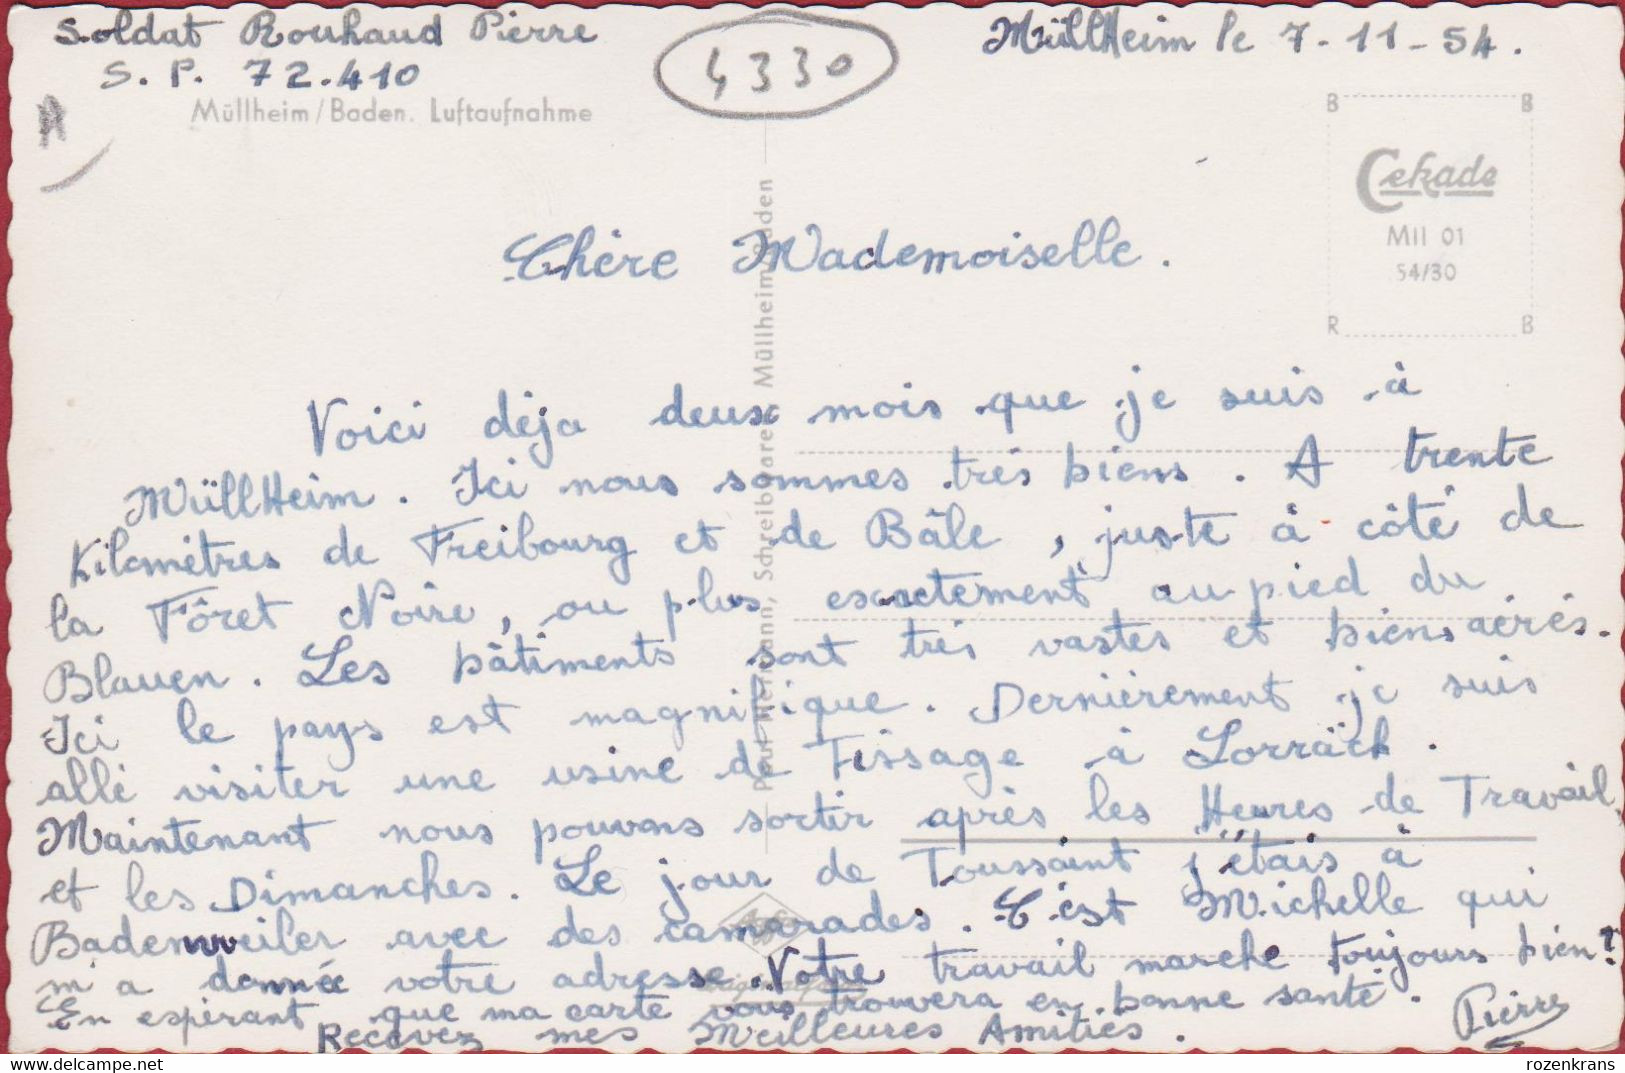 Soldat Rouhaud Pierre
S. P. 72.410
4330
MüllHeim le 7-11-54.
Müllheim/Baden. Luftaufnahme
B B
Cekade
Mll 01
54/30
R B
Chère Mademoiselle.
Voici déja deux mois que je suis à
MüllHeim. Ici nous sommes très biens. A trente
Kilomètres de Freibourg et de Bâle, juste à côté de
la Fôret Noire, ou plus exactement au pied du
Blauen. Les bâtiments sont très vastes et biens aérés.
Ici le pays est magnifique. Dernièrement je suis
allé visiter une usine de Tissage à Lorräch.
Maintenant nous pouvons sortir après les Heures de Travail,
et les Dimanches. Le jour de Toussaint j'étais à
Badenweiler avec des camarades. C'est Michelle qui
m'a donnée votre adresse. Votre travail marche toujours bien?
En espérant que ma carte vous trouvera en bonne santé.
Recevez mes Meilleures Amitiés. Pierre
Schreibwaren, Müllheim/Baden
rozenkrans